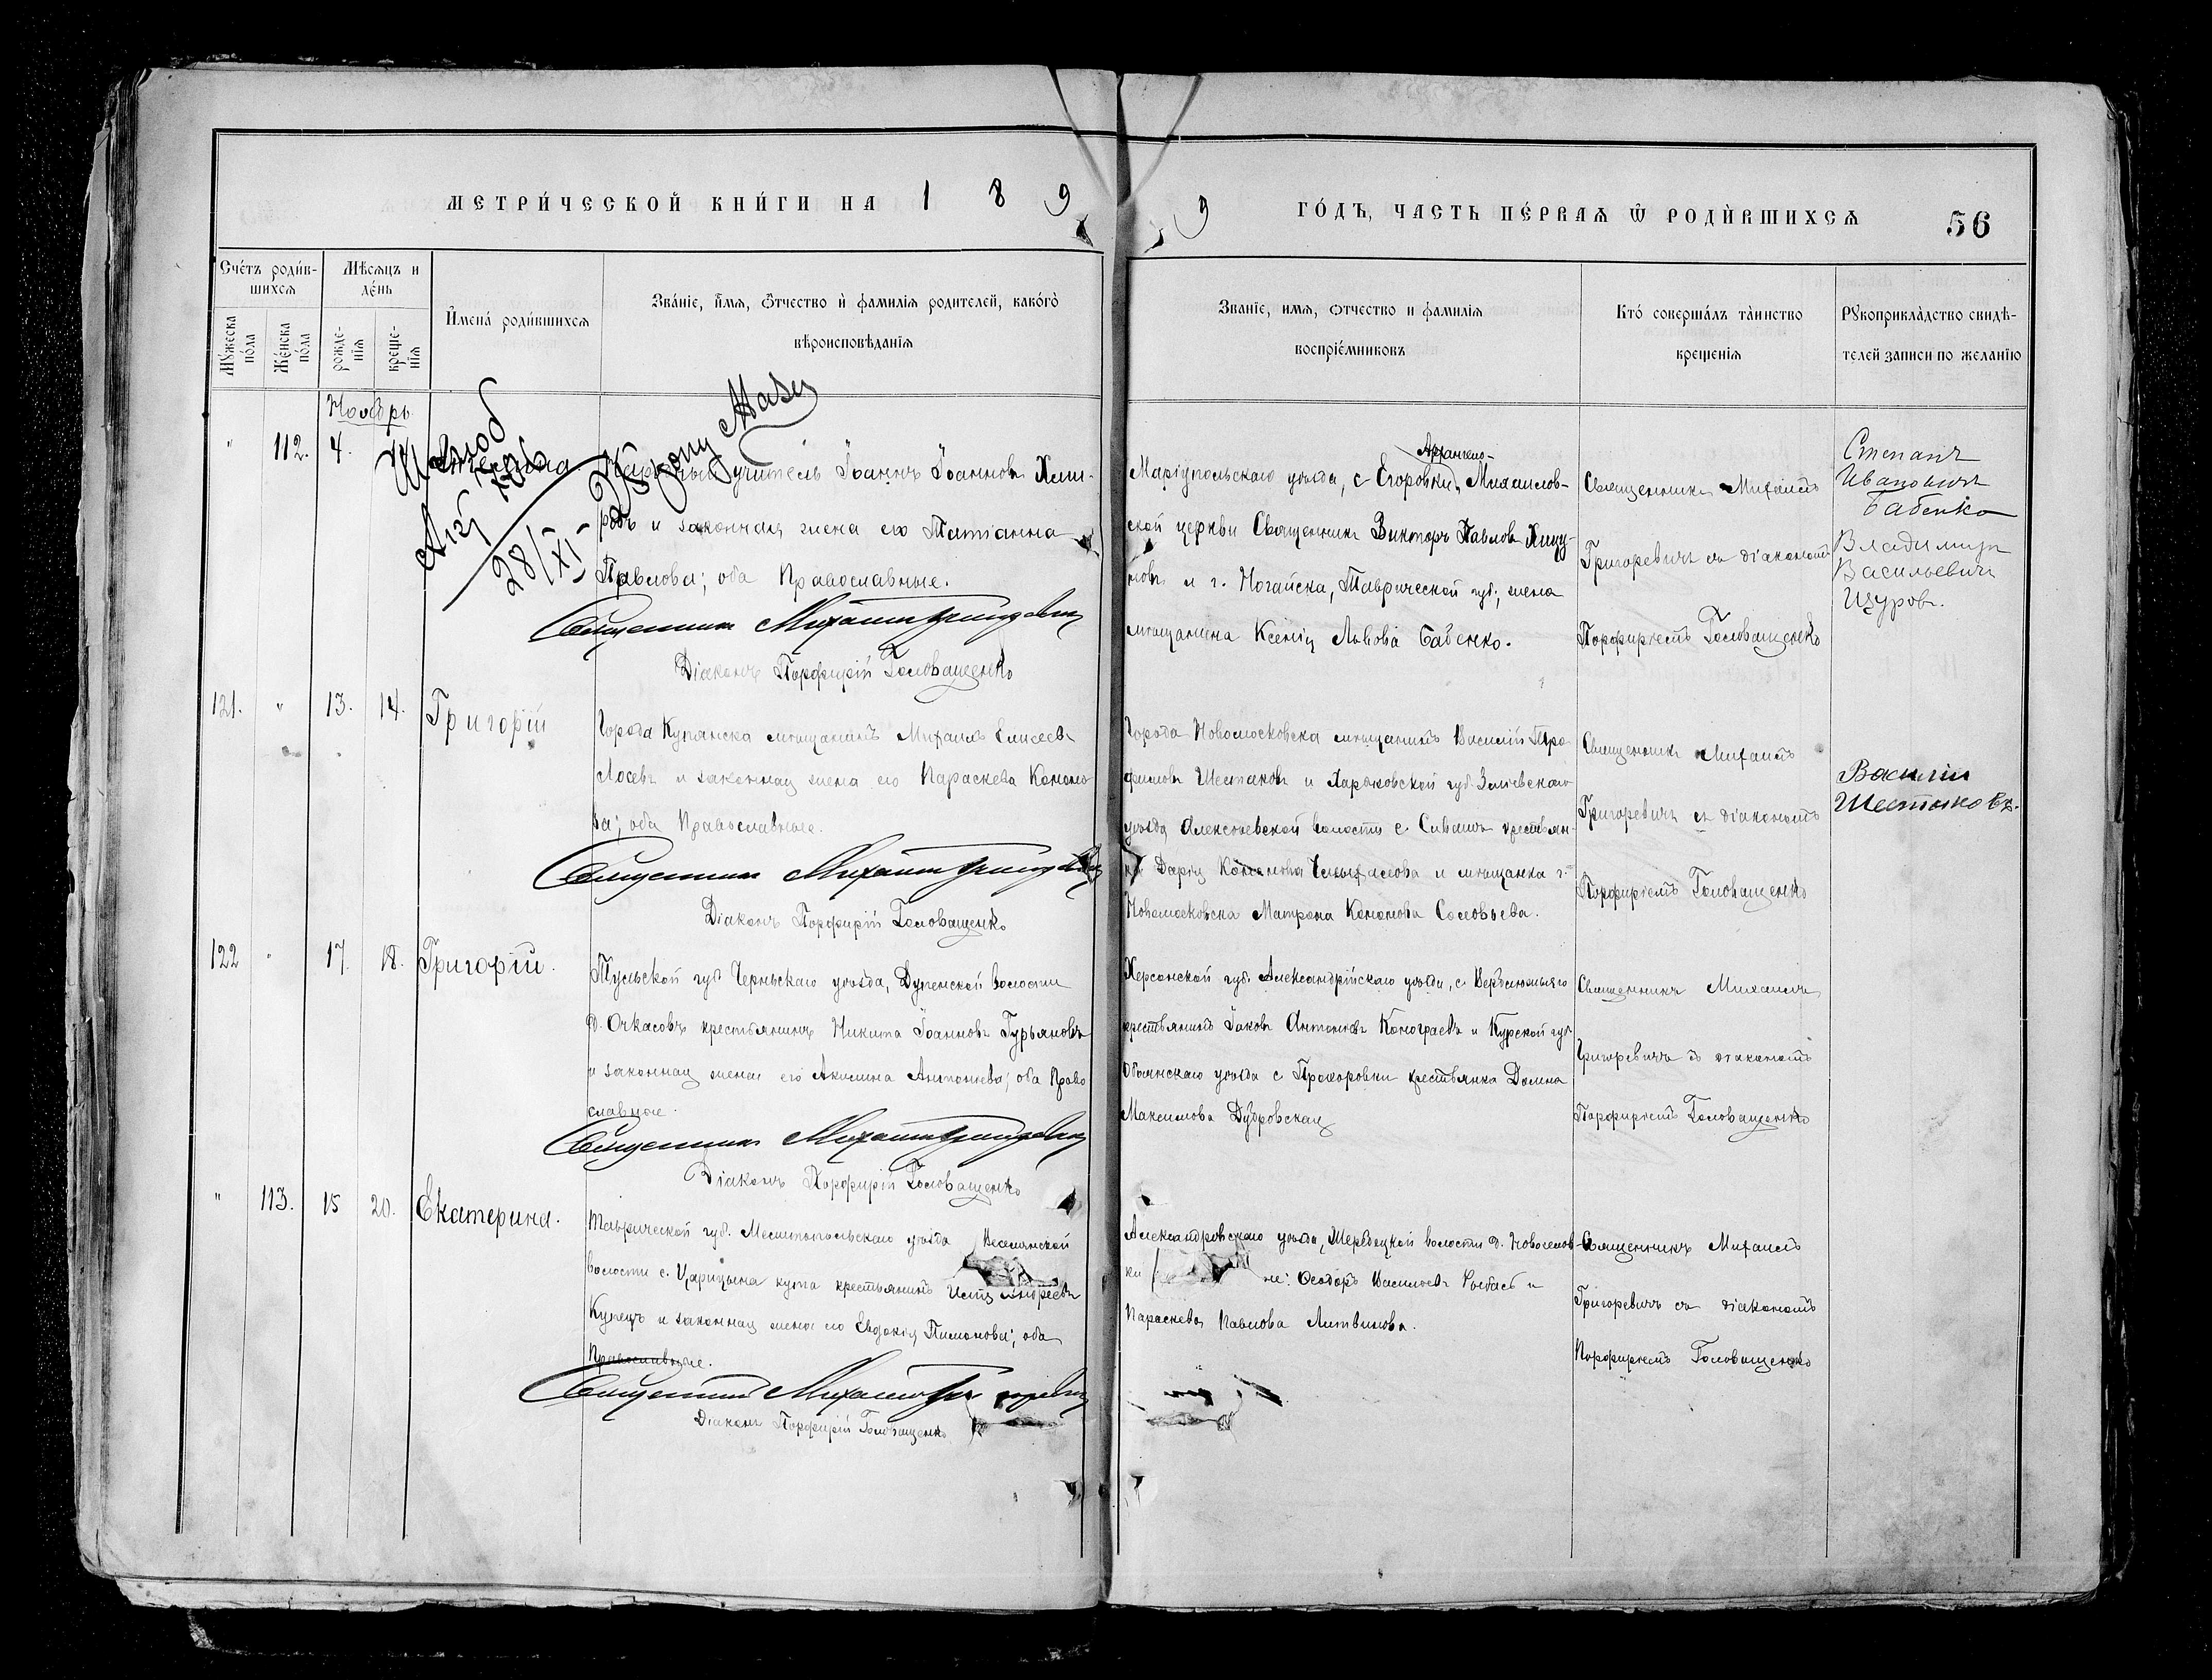 МЕТРИ́ЧЕСКОЙ КНИ́ГИ НА 1 8 9
9 ГО́ДЪ, ЧАСТЬ ПЕ́РВАѦ Ѿ РОДИ́ВШИХСѦ
56
Сче́тъ роди́в-
шихсѧ
Мѣсѧцъ и
де́нь
Мꙋ́жеска
по́ла
Же́нска
по́ла
рожде-
нїѧ
креще-
нїѧ
И҆мена́ роди́вшихсѧ
Зва́нїе, и҆́мѧ, ѻ҆́тчество и҆ фамилїѧ родителей, како́гѡ
вѣроисповѣданїѧ
Званїе, имѧ, ѻтчество и фамилїѧ
воспрїе́мниковъ
Кто́ соверша́лъ та́инство
крещенїѧ
Рꙋкоприкла̀дство свидѣ-
телей записи по желанїю
Ноябрь
" 112. 4.
28/XI
учитель Іоаннъ Іоанновъ
и законная жена его Татіанна
Павлова; оба Православные.
Священник Михаил Григоревич
Діаконъ Порфирій Головащенко
Маріупольскаго уѣзда, с Егоровки, Архангело-Михаилов-
ской церкви Священникъ Викторъ Павловъ
и г. Ногайска, Таврической губ; жена
мѣщанина Ксенія Львова Бабенко.
Священникъ Михаилъ
Григоревичъ съ діакономъ
Порфиріемъ Головащенко
Степанъ
Ивановичъ
Бабенко
Владимиръ
Васильевичъ
Щуровъ.
121. " 13. 14. Григорій
Города Купянска мѣщанинъ Михаилъ Елисеевъ
Лосевъ и законная жена его Параскева Кононо-
ва; оба Православные.
Священник Михаил Григоревич
Діаконъ Порфирій Головащенко
Города Новомосковска мѣщанинъ Василій Тро-
фимовъ Шестаковъ и Харьковской губ. Зміевскаго
уѣзда Алексѣевской волости с Сивашъ крестьян-
ка Дарія Кононова и мѣщанка г.
Новомосковска Матрона Кононова Соловьева.
Священникъ Михаилъ
Григоревичъ съ діакономъ
Порфиріемъ Головащенко
Василій
Шестаковъ.
122 " 17. 18. Григорій.
Тульской губ Чернскаго уѣзда, Дупенской волости
д. Очкасовъ крестьянинъ Никита Іоанновъ Гурьяновъ
и законная жена его Акилина Антоніева; оба Право
славные.
Священник Михаил Григоревич
Діаконъ Порфирій Головащенко
Херсонской губ. Александрійскаго уѣзда, с
крестьянинъ Іаковъ Антоніевъ Конограевъ и Курской губ
Обоянскаго уѣзда с Прохоровки крестьянка Домна
Максимова Дубровская
Священникъ Михаилъ
Григоревичъ съ діакономъ
Порфиріемъ Головащенко
" 113. 15 20. Екатерина.
Таврической губ. Мелитопольскаго уѣзда Веселянской
волости с. Царицына кута крестьянинъ Андреевъ
Купецъ и законная жена его Евдокія Пимонова; оба
Православные.
Священник Михаил Григоревич
Діаконъ Порфирій Головащенко
Александровскаго уѣзда, волости д. Новоселов-
ки не: Ѳеодоръ Васильевъ и
Параскева Павлова Литвинова.
Священникъ Михаилъ
Григоревичъ съ діакономъ
Порфиріемъ Головащенко